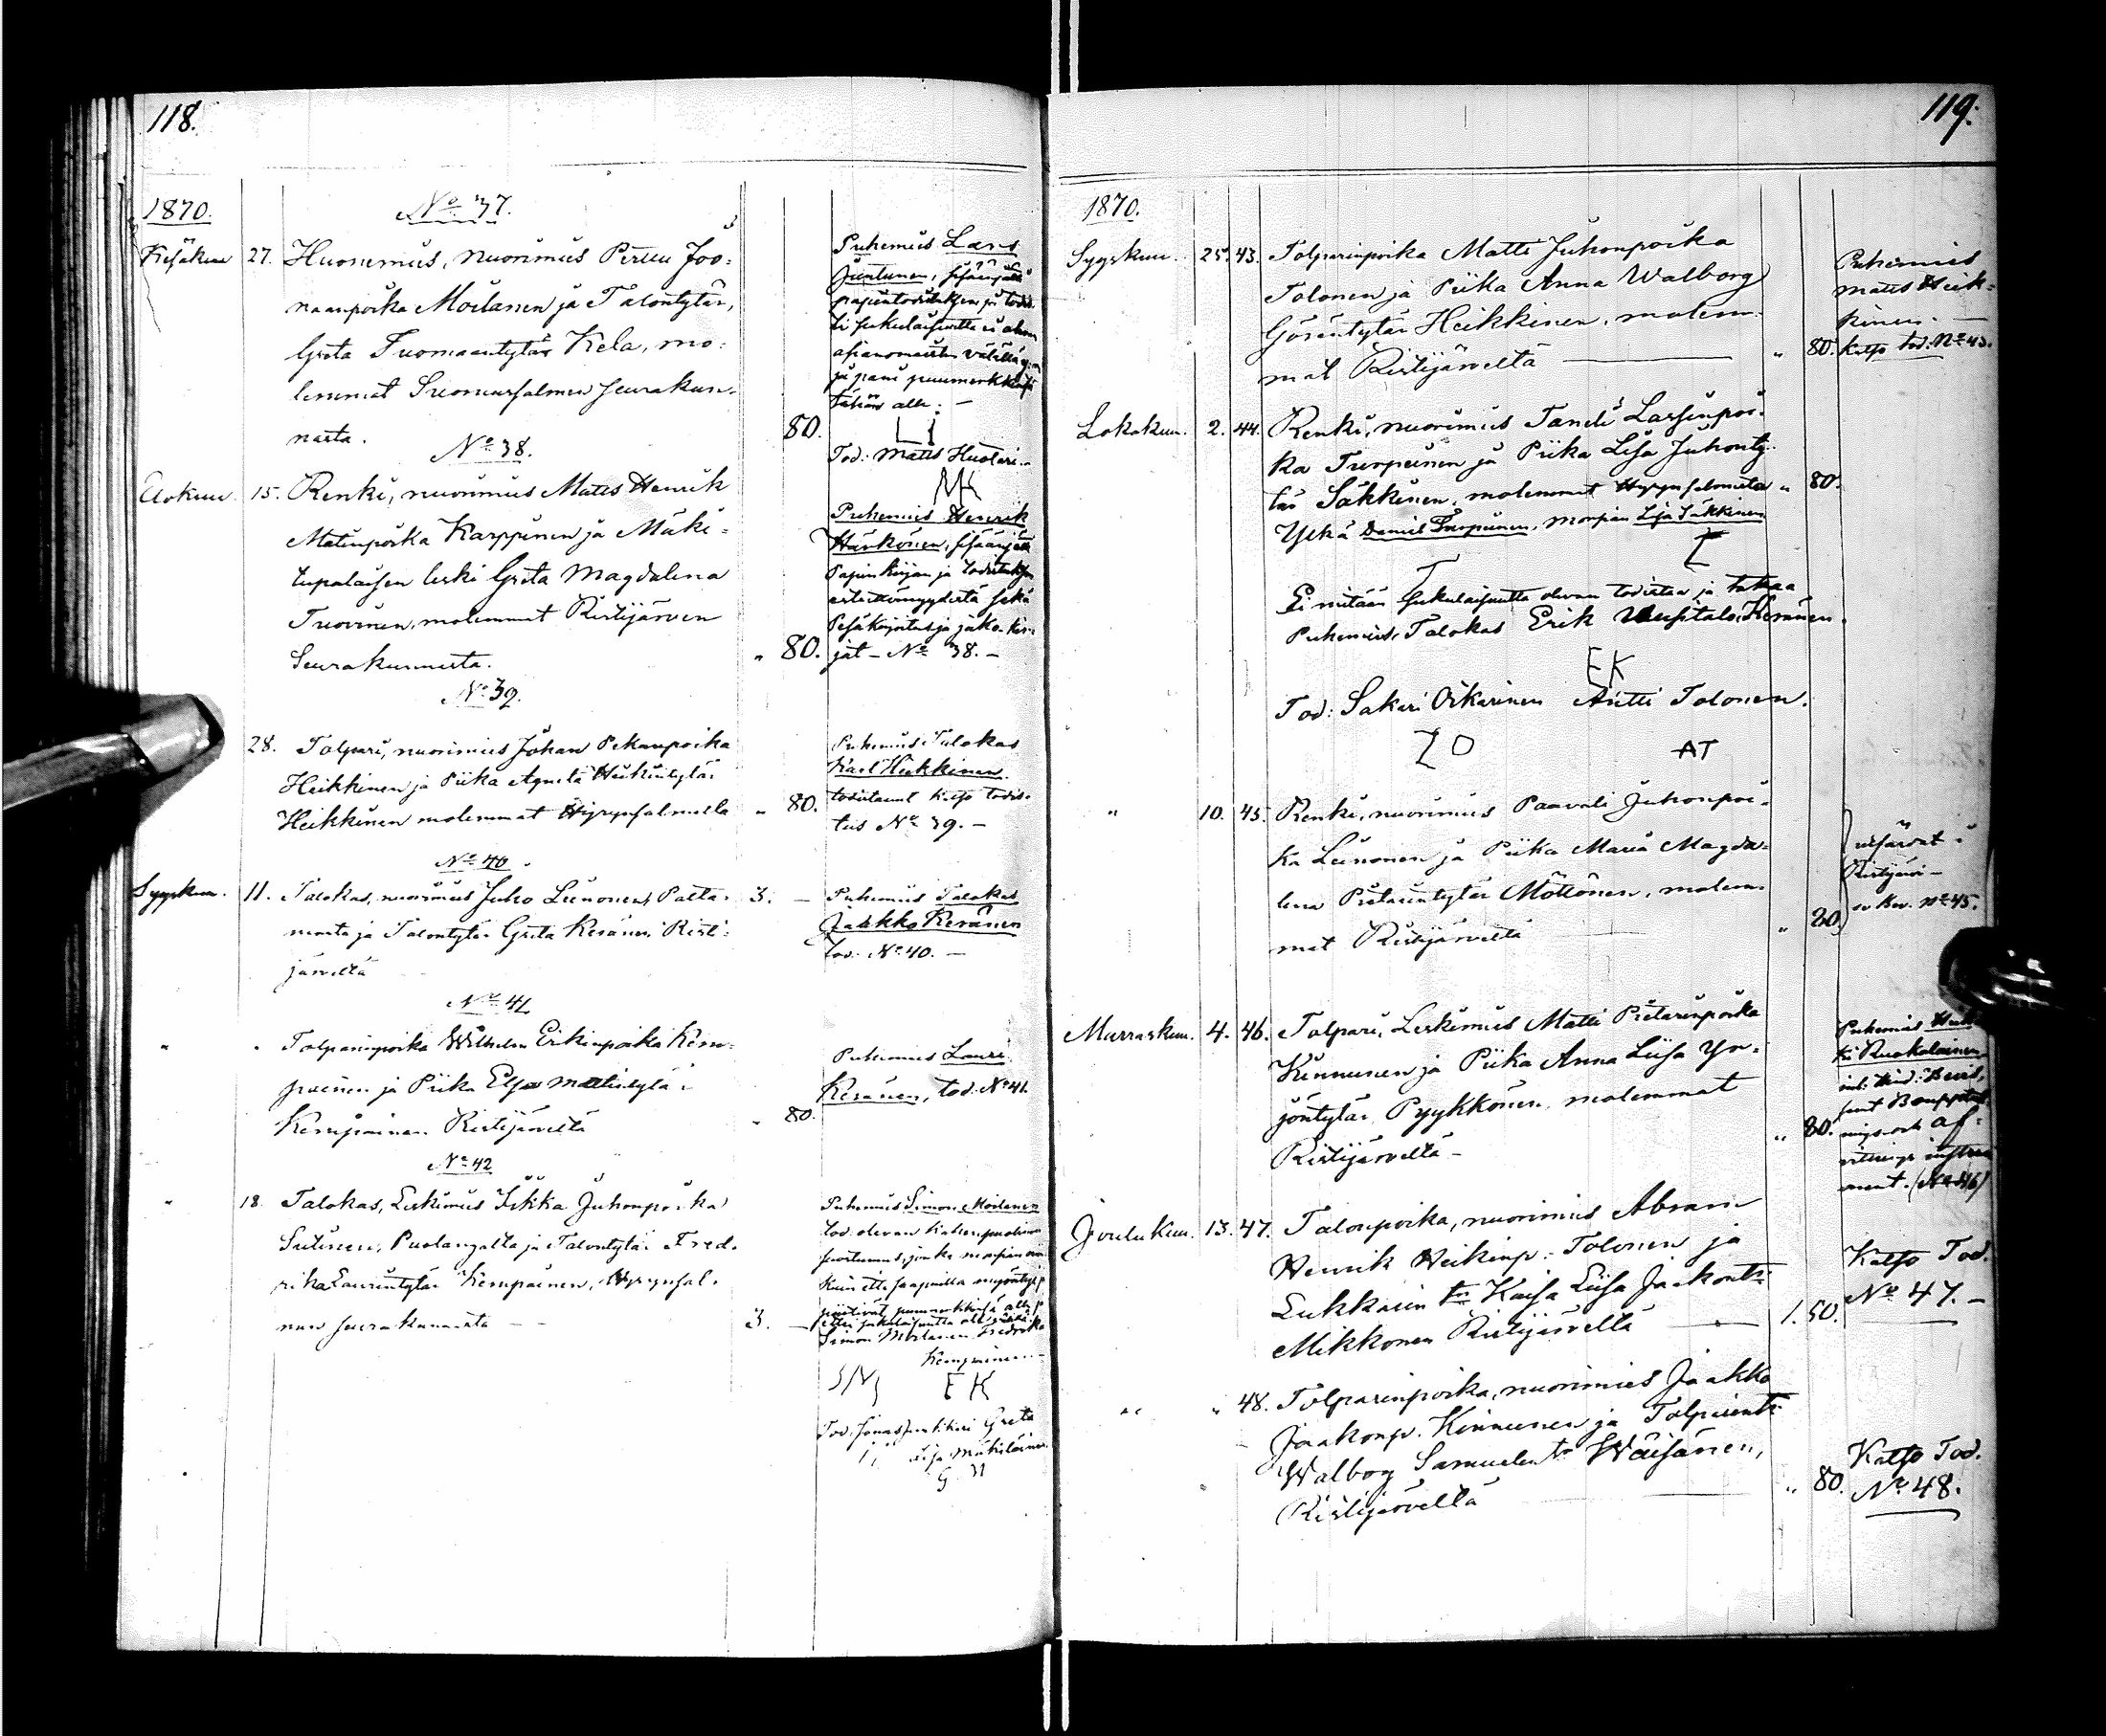 118.
1870.
No 37.
Kesäkuu 27. Huonemies, nuorimies Pettu Joo=
naanpoika Moilanen ja Talontytär,
Greta Tuomaantytär Kela, mo=
lemmat Suomussalmen seurakun-
nasta. 80.
Puhemies Lars
Juntunen,
tähän alle: —
Tod: Matts Huotari.
MK
No 38.
Elokuu 15. Renki, nuorimies Matts Henrik
Matinpoika Karppinen ja Mäki=
tupalaisen leski Greta Magdalena
Tuovinen, molemmat Ristijärven
Seurakunnasta. " 80.
Puhemies Henrik
Härkönen, sisäänjätti
Papinkirjan ja todistuksen
esteettömyydestä sekä
Pesäkirjoitus ja jako-kir=
jat - No 38. -
No 39.
28. Tolpari, nuorimies Johan Pekanpoika
Heikkinen ja Piika Agneta Heikintytär
Heikkinen molemmat Hyrynsalmelta " 80.
Puhemies Talokas
Karl Heikkinen
todistanut katso todis-
tus No 39. -
No 40
Syyskuu. 11. Talokas, nuorimies Juho Leinonen Palta-
mosta ja Talontytär Greta Keränen Risti-
järveltä 3. —
Puhemies Talokas
Jaakko Keränen
tod. No 40. —
No 41
" " Tolparinpoika Wilhelm Erkinpoika Kem-
painen ja Piika Elsa Matintytär
Kemppainen Ristijärveltä " 80.
Puhemies Lauri
Keränen, tod. No 41.
No 42
" 18. Talokas, Leskimies Iikka Juhonpoika
Seitinen, Puolangalta ja Talontytär Fred-
rika Laurintytär Kempainen, Hyrynsal-
men seurakunnasta — 3. —
Puhemies Simon Moilanen
Simon Moilanen Fredrika
Kempainen
EK
Greta
Lisa Mäkeläinen
119.
1870.
Syyskuu. 25. 43. Tolparinpoika Matti Juhonpoika
Tolonen ja Piika Anna Walborg
Göräntytär Heikkinen, molem-
mat Ristijärveltä — " 80.
Puhemies
Matts Heik=
kinen. —
Katso tod. No 43.
Lokakuu. 2. 44. Renki, nuorimies Taneli Lassinpoi-
ka Turpeinen ja Piika Lisa Juhonty-
tär Säkkinen, molemmat Hyrynsalmelta " 80.
Ylkä Daniel Turpeinen, morsian Lisa Säkkinen
T
Ei mitään sukulaisuutta olevan todistaa ja takaa
Puhemies, Talokas Erik Uusitalo Keränen.
EK
Tod: Sakari Oikarinen Antti Tolonen.
ZO AT
" 10. 45. Renki, nuorimies Paavali Juhonpoi-
ka Leinonen ja Piika Maria Magda-
lena Pietarintytär Möttönen, molem-
mat Ristijärveltä " 80.
Ristijärvi —
No 45.
Marraskuu. 4. 46. Tolpari, Leskimies Matti Pietarinpoika
Kinnunen ja Piika Anna Liisa Yr-
jöntytär Pyykkönen, molemmat
Ristijärveltä — " 80.
Puhemies
Ruokolainen
samt Bouppteck
nings och af=
vittrings instru
ment. (No 46)
Joulukuu. 13. 47. Talonpoika, nuorimies Abram
Henrik Heikinp. Tolonen ja
Lukkarin tr Kaisa Liisa Jaakontr
Mikkonen Ristijärveltä — 1. 50.
Katso Tod.
No 47. —
" " 48. Tolparinpoika, nuorimies Jaakko
Jaakonp. Kinnunen ja Tolparintr
Walbog Samuelin tr Wäisänen,
Ristijärveltä — " 80.
Katso Tod.
No 48.